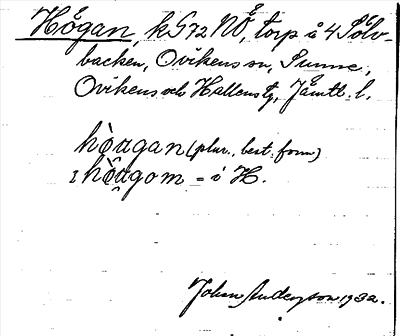 Hågan, k G72 NÖ, torp å 4 Sölv-
backen, Ovikens sn, Sunne,
Ovikens och Hallens tg, Jämtl. l.
hòugan (plur. best. form)
ı hòugom = i H.
Johan Andersson 1932.